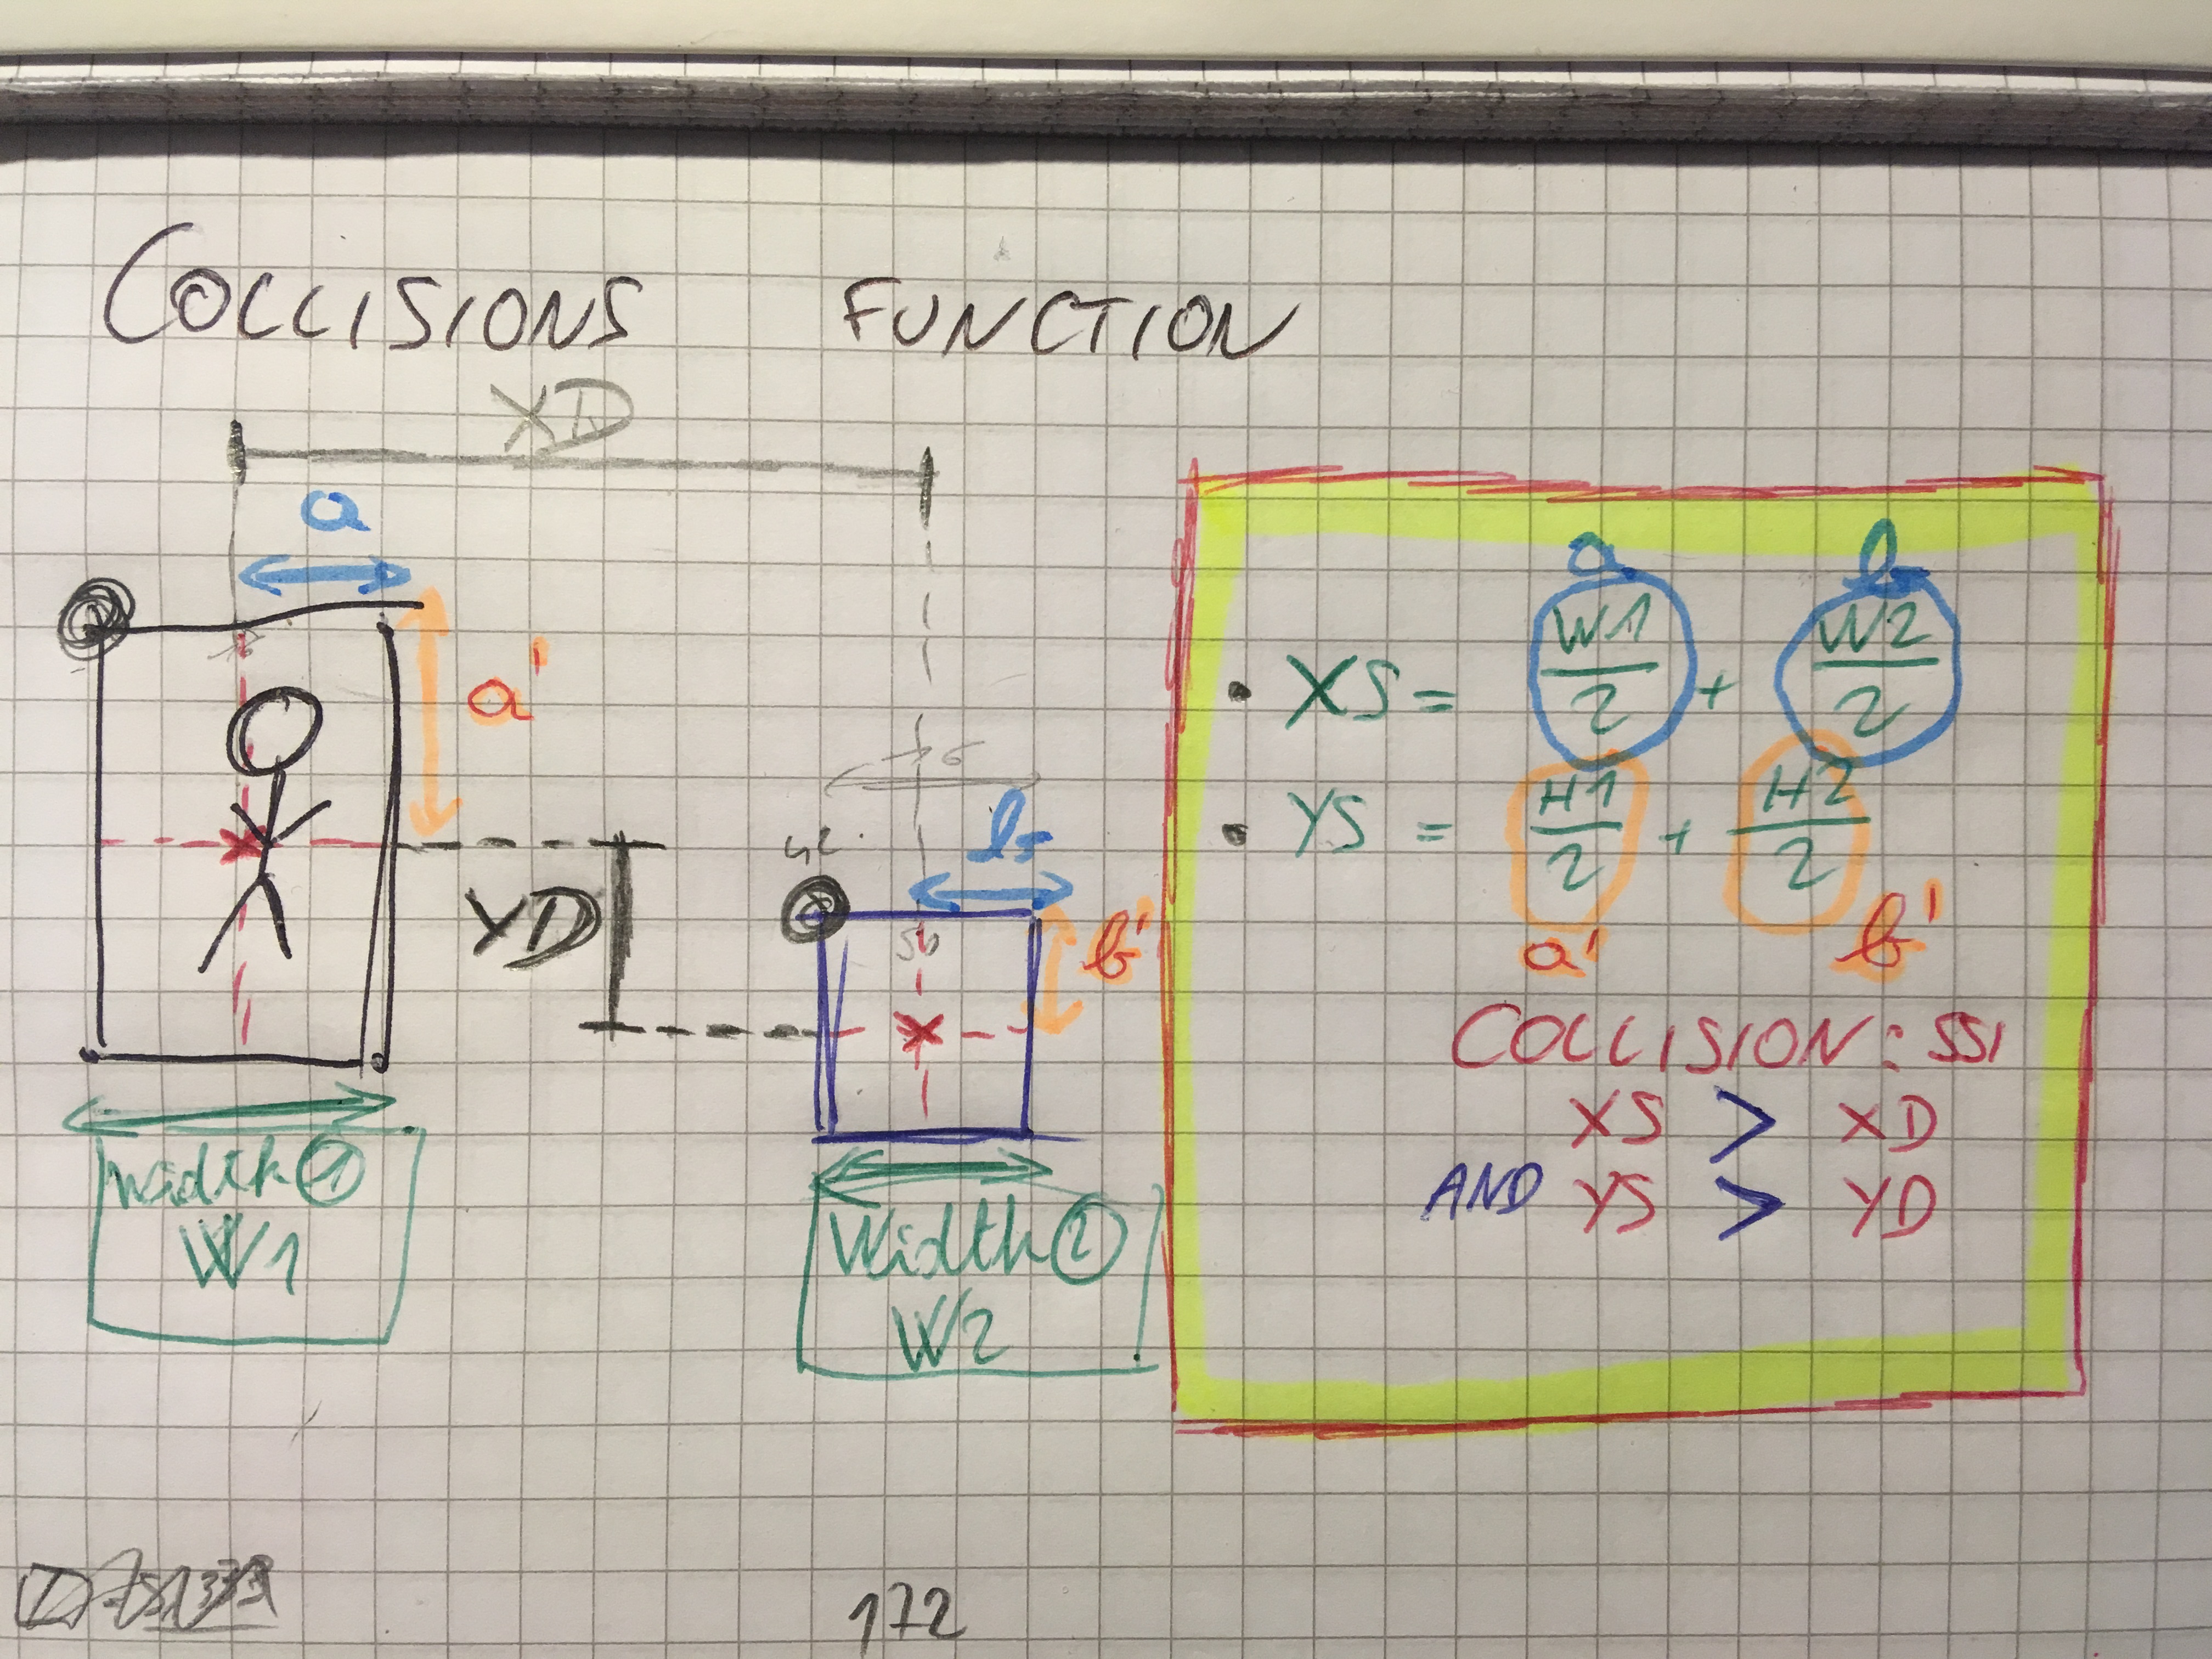 COLLISIONS FUNCTION
XD
a
a'
YD
16
42
b
50
b'
Width ①
W1
Width ②
W2
a b
• XS = W1/2 + W2/2
• YS = H1/2 + H2/2
a' b'
COLLISION : SSI
XS > XD
AND YS > YD
172